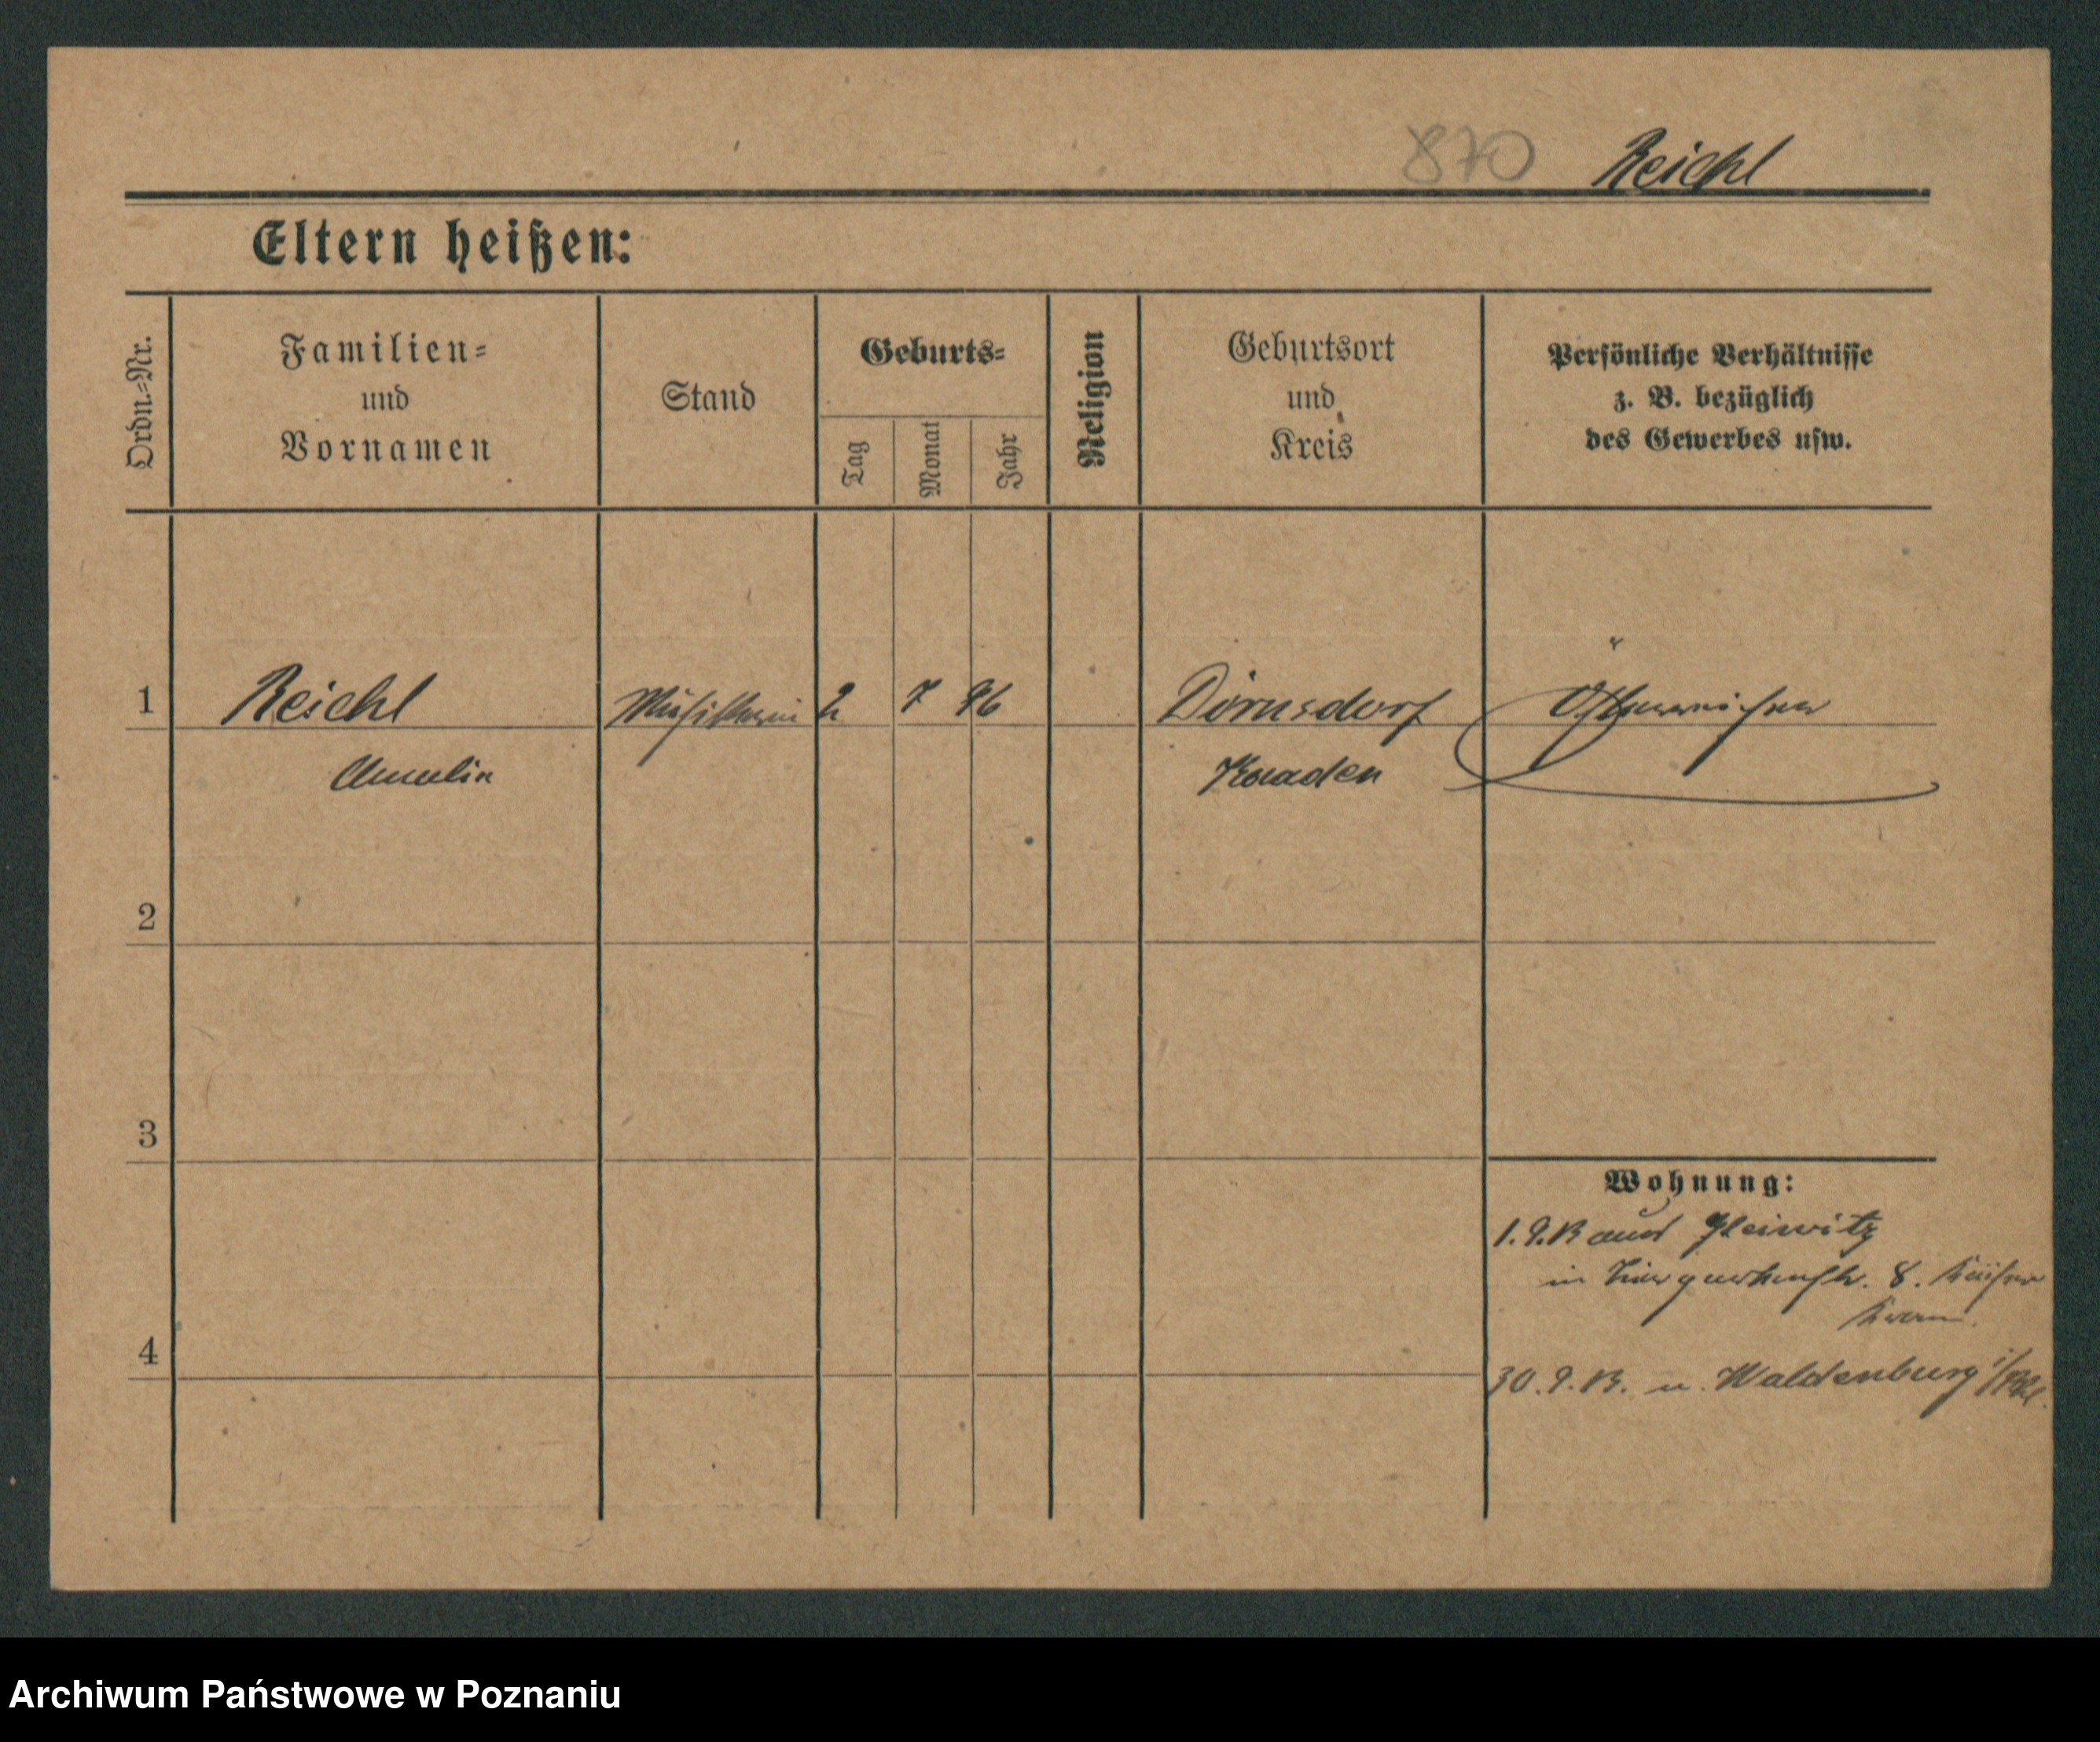 870 Reichl
Eltern heißen:
Ordn.-Nr.
Familien-
und
Vornamen
Stand
Geburts-
Tag
Monat
Jahr
Religion
Geburtsort
und
Kreis
Persönliche Verhältnisse
z. B. bezüglich
des Gewerbes usw.
1 Reichl Musikerin 2 7 96 Dörnsdorf Österreicher
Kaaden
2
3
Wohnung:
1.9.13 aus Gleiwitz
in 8.
4
30.9.13. n. Waldenburg
Archiwum Państwowe w Poznaniu